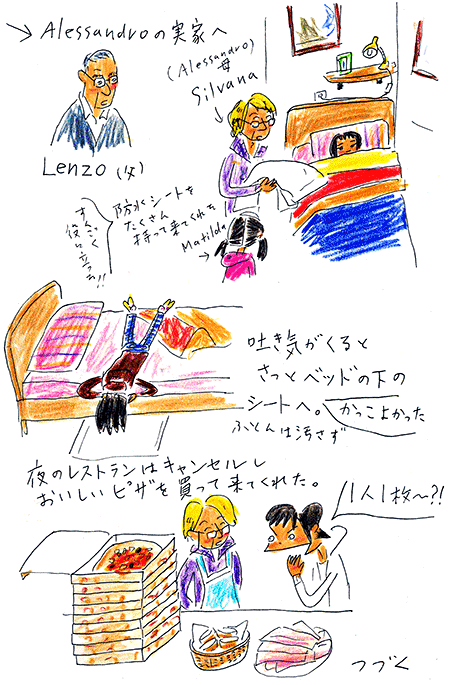 → Alessandroの実家へ
Lenzo (父)
(Alessandro)
母
Silvana
防水シートを
たくさん
持って来てくれた
すんごく
役に立つ!!
Matilda
吐き気がくると
さっとベッドの下の
シートへ。
かっこよかった
ふとんは汚さず
夜のレストランはキャンセルし
おいしいピザを買って来てくれた。
1人1枚〜?!
つづく